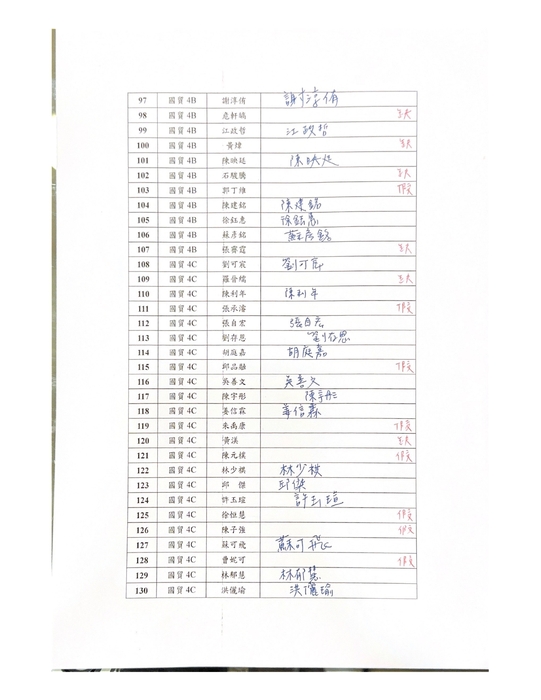 97 國貿 4B 謝淳侑 謝淳侑
98 國貿 4B 危軒緰
99 國貿 4B 江政哲 江政哲
100 國貿 4B 黃緯
101 國貿 4B 陳映廷 陳映廷
102 國貿 4B 石駿騰
103 國貿 4B 郭丁維 假
104 國貿 4B 陳建銘 陳建銘
105 國貿 4B 徐鈺惠 徐鈺惠
106 國貿 4B 蘇彥銘 蘇彥銘
107 國貿 4B 張睿霆
108 國貿 4C 劉可宸 劉可宸
109 國貿 4C
110 國貿 4C 陳利年 陳利年
111 國貿 4C 張承濬 假
112 國貿 4C 張自宏 張自宏
113 國貿 4C 劉存恩 劉存恩
114 國貿 4C 胡庭嘉 胡庭嘉
115 國貿 4C 邱品融 假
116 國貿 4C 吳善文 吳善文
117 國貿 4C 陳宇彤 陳宇彤
118 國貿 4C 姜信霖 姜信霖
119 國貿 4C 朱禹康 假
120 國貿 4C 黃淇
121 國貿 4C 陳元樸 假
122 國貿 4C 林少棋 林少棋
123 國貿 4C 邱 傑 邱傑
124 國貿 4C 許玉瑄 許玉瑄
125 國貿 4C 徐恒慧 假
126 國貿 4C 陳子強 假
127 國貿 4C 蘇可飛 蘇可飛
128 國貿 4C 曹妮可 假
129 國貿 4C 林郁慧 林郁慧
130 國貿 4C 洪儷瑜 洪儷瑜